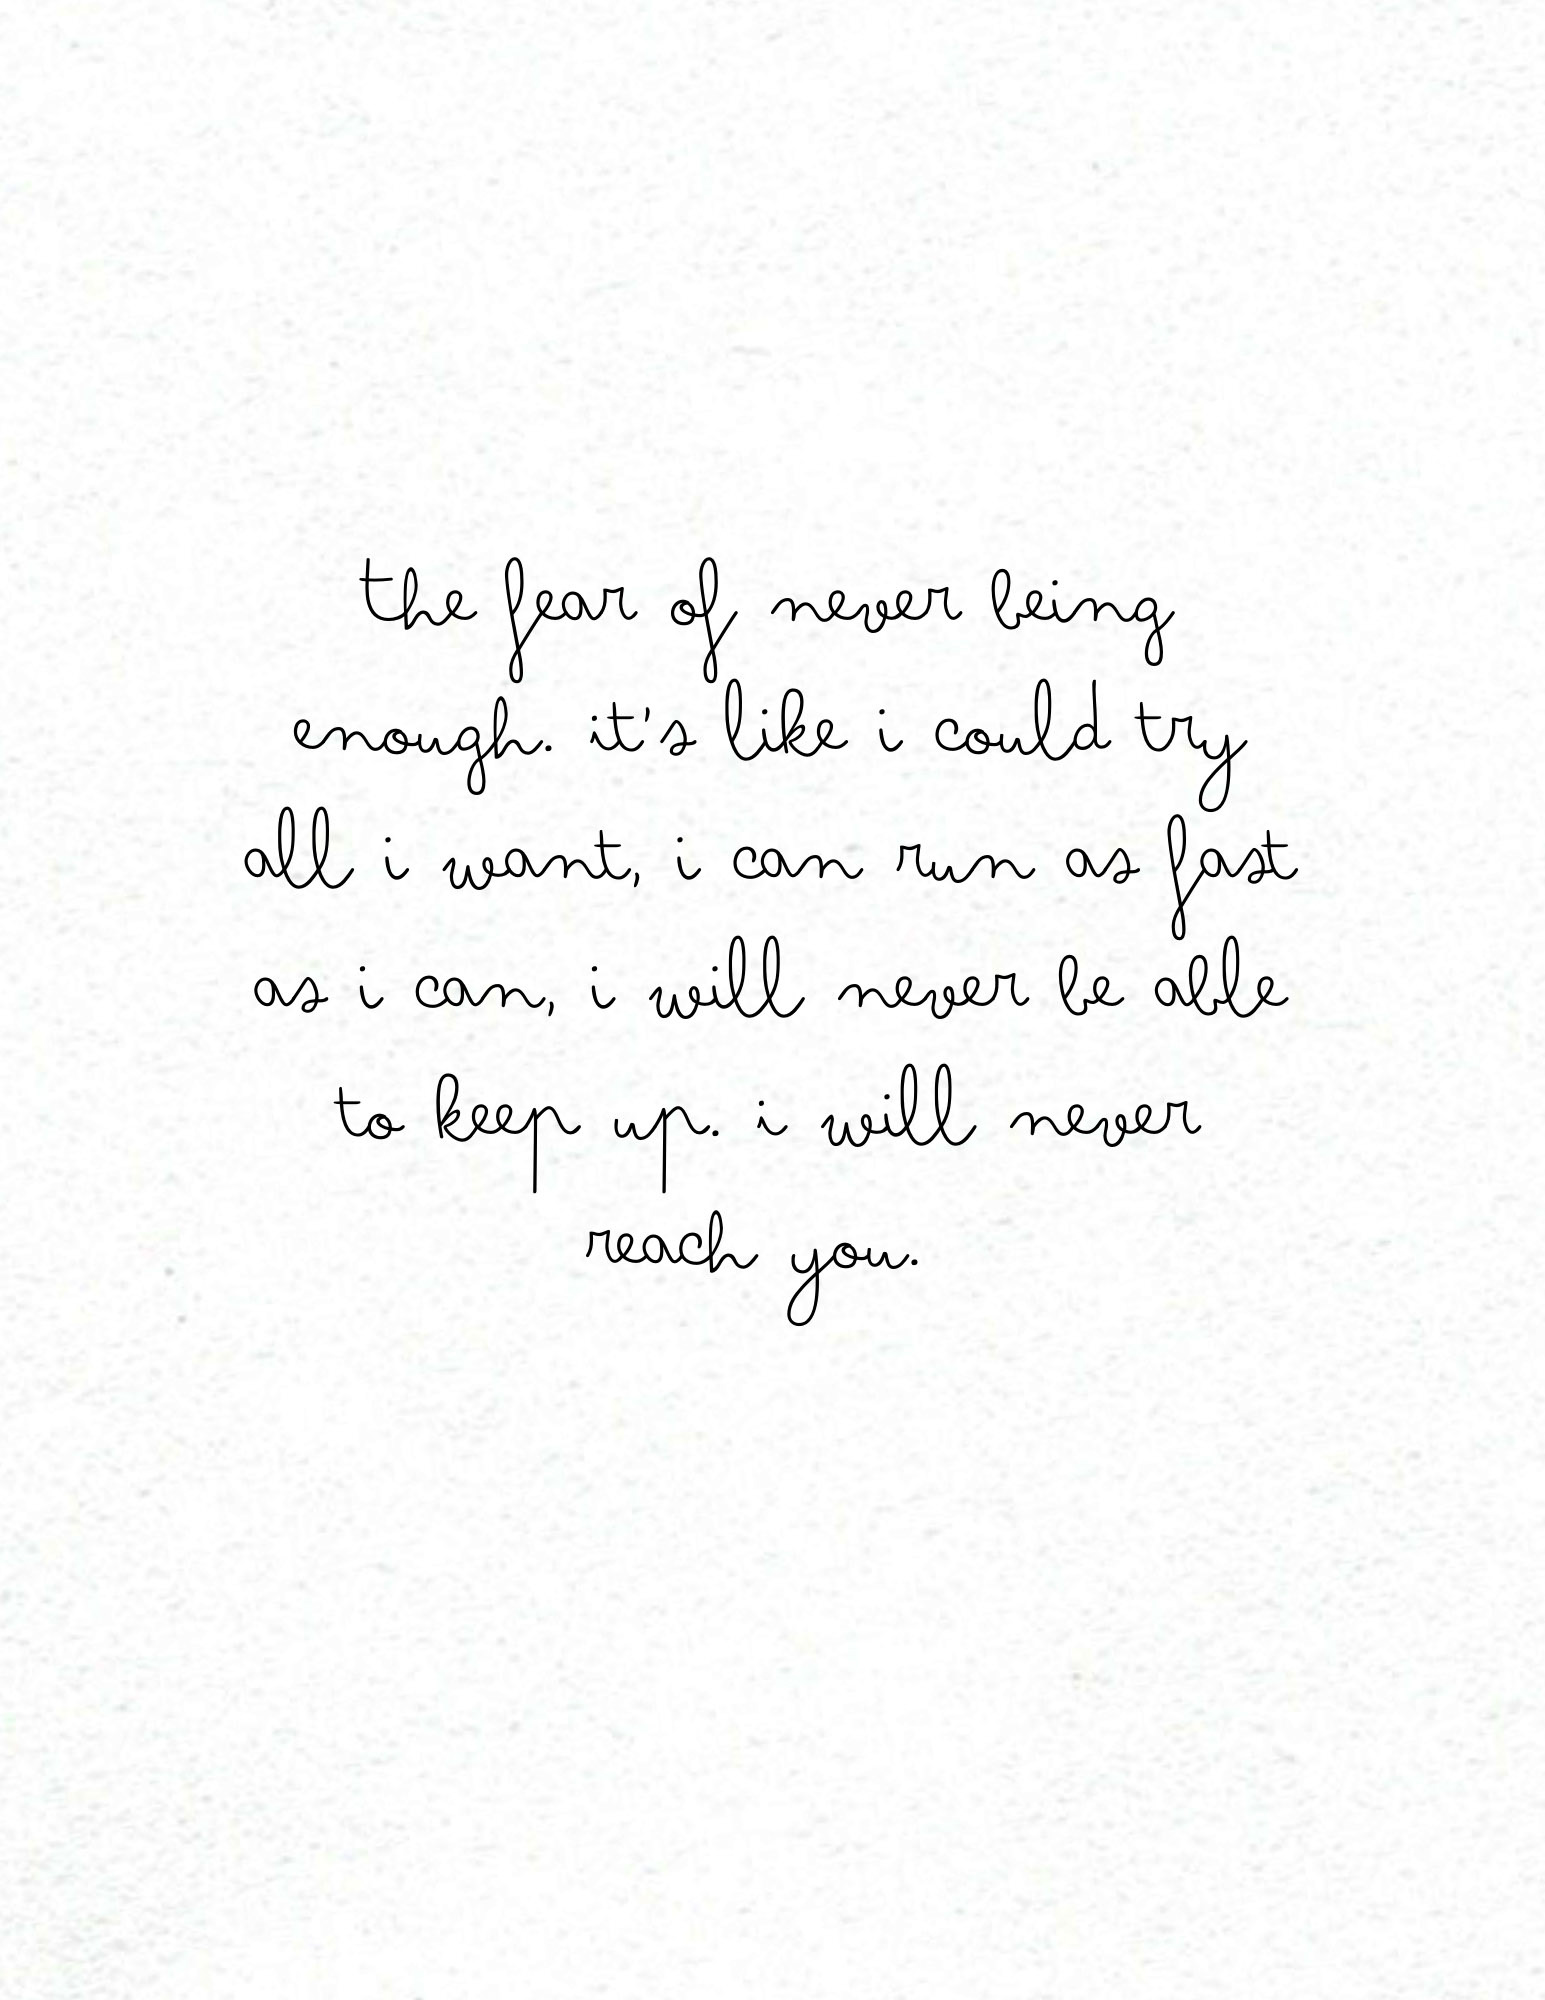 the fear of never being
enough. it's like i could try
all i want, i can run as fast
as i can, i will never be able
to keep up. i will never
reach you.